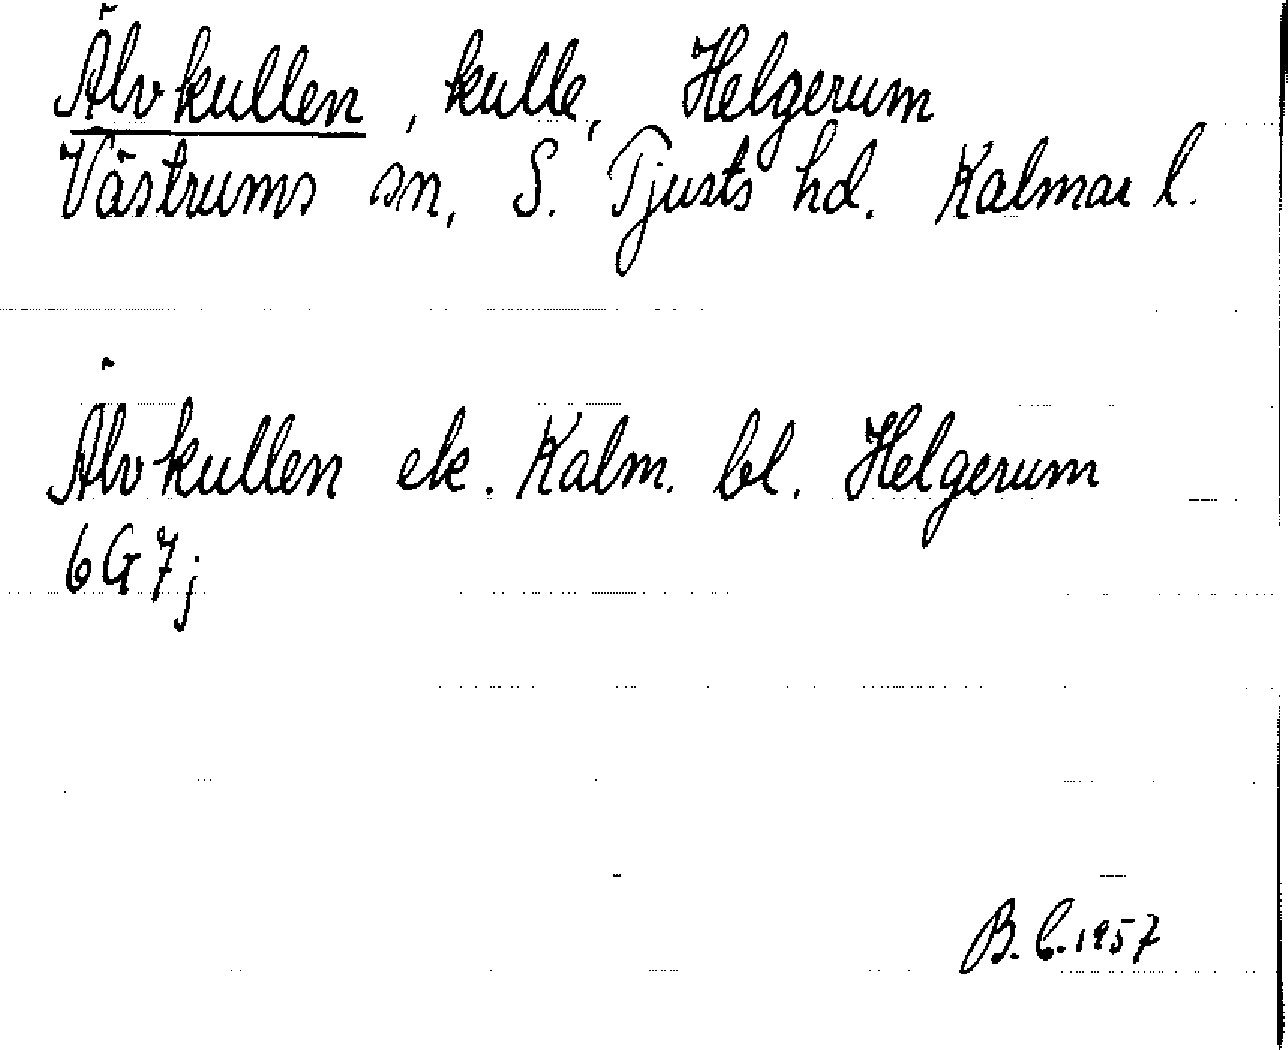 Älvkullen, kulle, Helgerum
Västrums sn, S. Tjusts hd. Kalmar l.
Älvkullen ek. Kalm. bl. Helgerum
6G7j
B. C. 1957